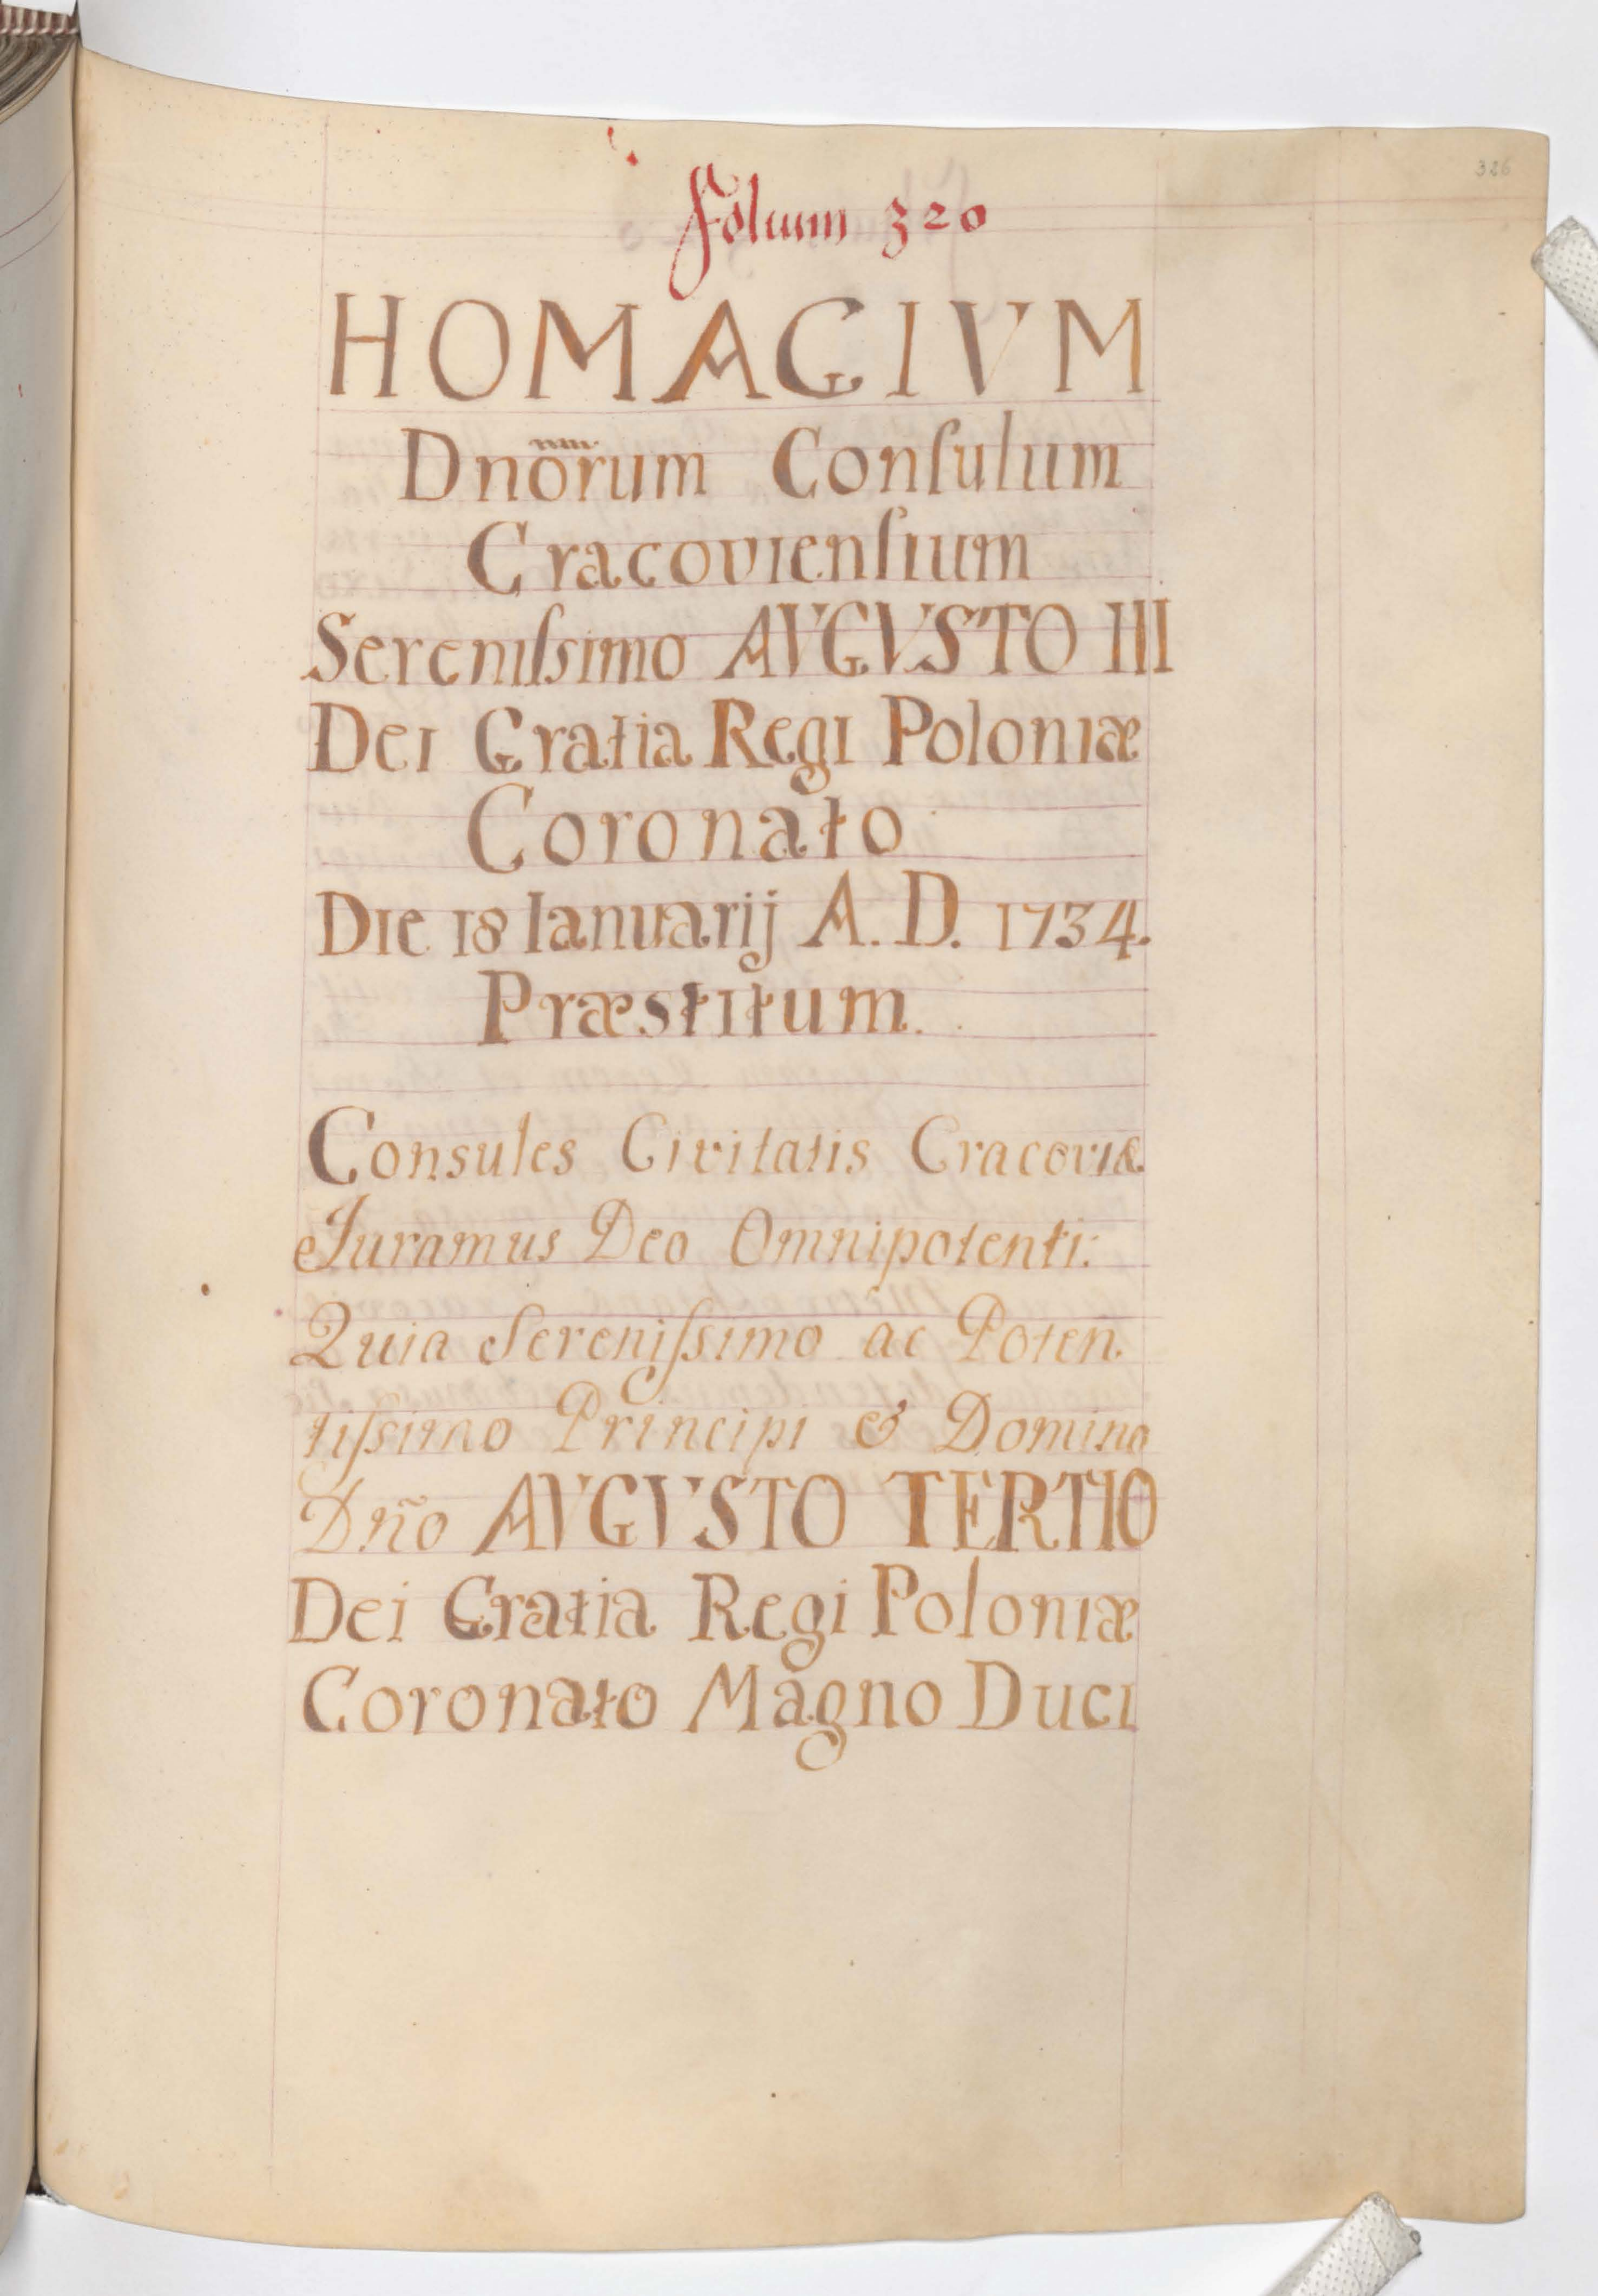 326
Folium 320
HOMAGIVM
Dnõrum Conſulum
Cracovienſium
Sereniſsimo AVGVSTO III
Dei Gratia Regi Poloniæ
Coronato
Die 18 Ianuarij A. D. 1734.
Præstitum.
Consules Civitatis Cracoviæ
Juramus Deo Omnipotenti:
Quia Sereniſsimo ac Poten
tiſsimo Principi & Domino
Dño AVGVSTO TERTIO
Dei Gratia Regi Poloniæ
Coronato Magno Duci